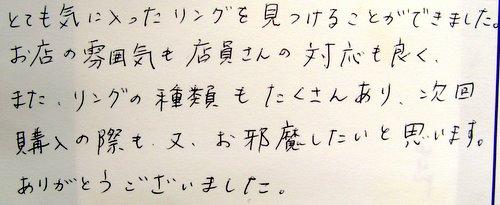 とても気に入ったリングを見つけることができました。
お店の雰囲気も店員さんの対応も良く、
また、リングの種類もたくさんあり、次回
購入の際も、又、お邪魔したいと思います。
ありがとうございました。